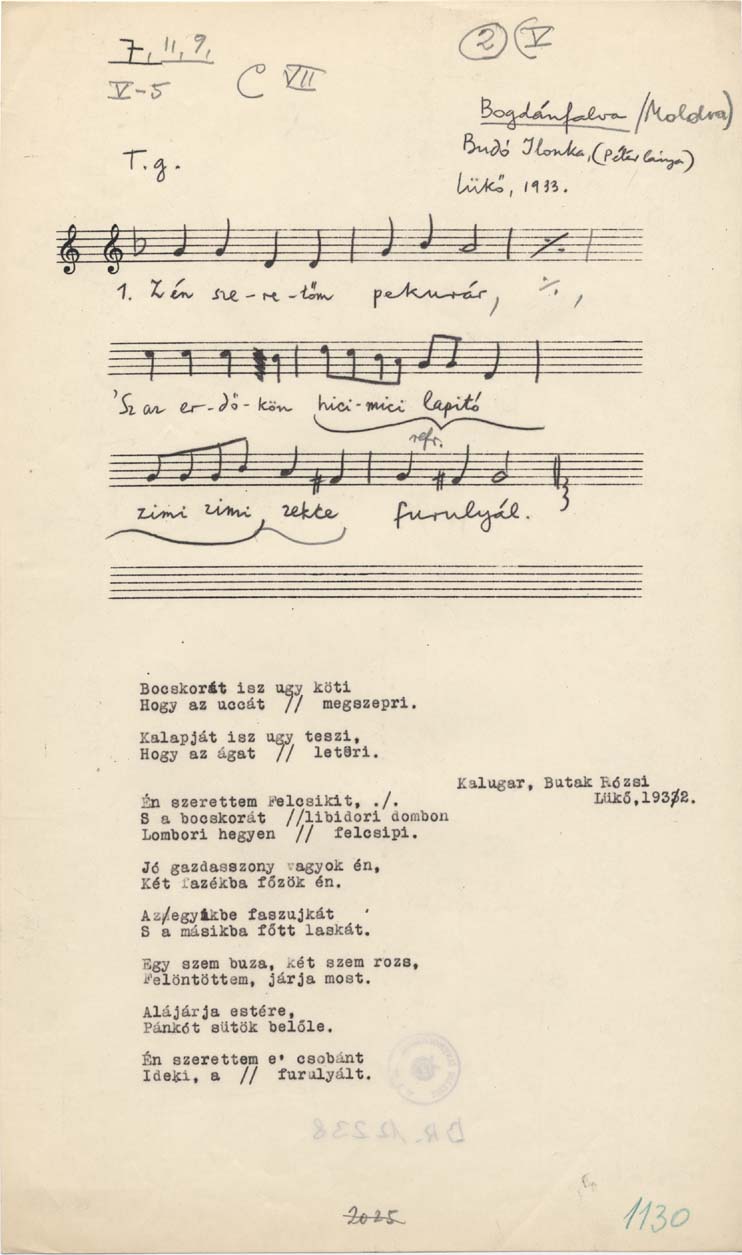 7, 11, 9,
V-5
C VII
2 V
Bogdánfalva /Moldva)
Budó Ilonka, (Péter lánya)
Lükő, 1933.
T. g.
1. Z én sze-re-tőm pekurár, ./. ,
'Sz az er-dő-kön hici-mici lapitó
refr.
zimi zimi zekce furulyál.
Bocskorát isz ugy köti
Hogy az uccát // megszepri.
Kalapját isz ugy teszi,
Hogy az ágat // letöri.
Kalugar, Butak Rózsi
Lükő,1932.
Én szerettem Felcsikit, ./.
S a bocskorát //libidori dombon
Lombori hegyen // felcsipi.
Jó gazdasszony vagyok én,
Két fazékba főzök én.
Az/egyikbe faszujkát
S a másikba főtt laskát.
Egy szem buza, két szem rozs,
Felöntöttem, járja most.
Alájárja estére,
Pánkót sütök belőle.
Én szerettem e' csobánt
Ideki, a // furulyált.
2025
1130